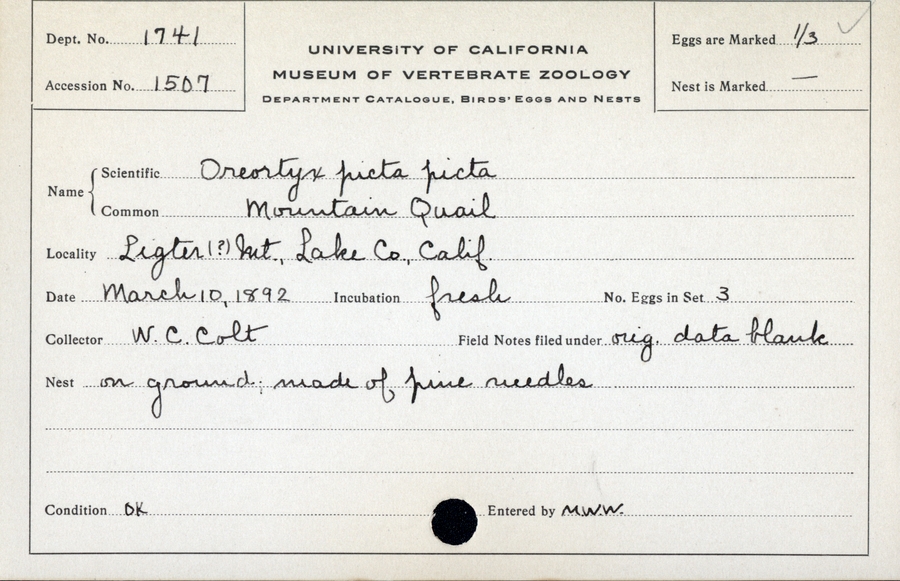 Dept. No. 1741
Accession No. 1507
UNIVERSITY OF CALIFORNIA
MUSEUM OF VERTEBRATE ZOOLOGY
DEPARTMENT CATALOGUE, BIRDS' EGGS AND NESTS
Eggs are Marked 1/3
Nest is Marked —
Name
Scientific Oreortyx picta picta
Common Mountain Quail
Locality Ligter (?) Mt., Lake Co., Calif.
Date March 10, 1892 Incubation fresh No. Eggs in Set 3
Collector W. C. Colt Field Notes filed under orig. data blank
Nest on ground; made of pine needles
Condition OK Entered by M.W.W.